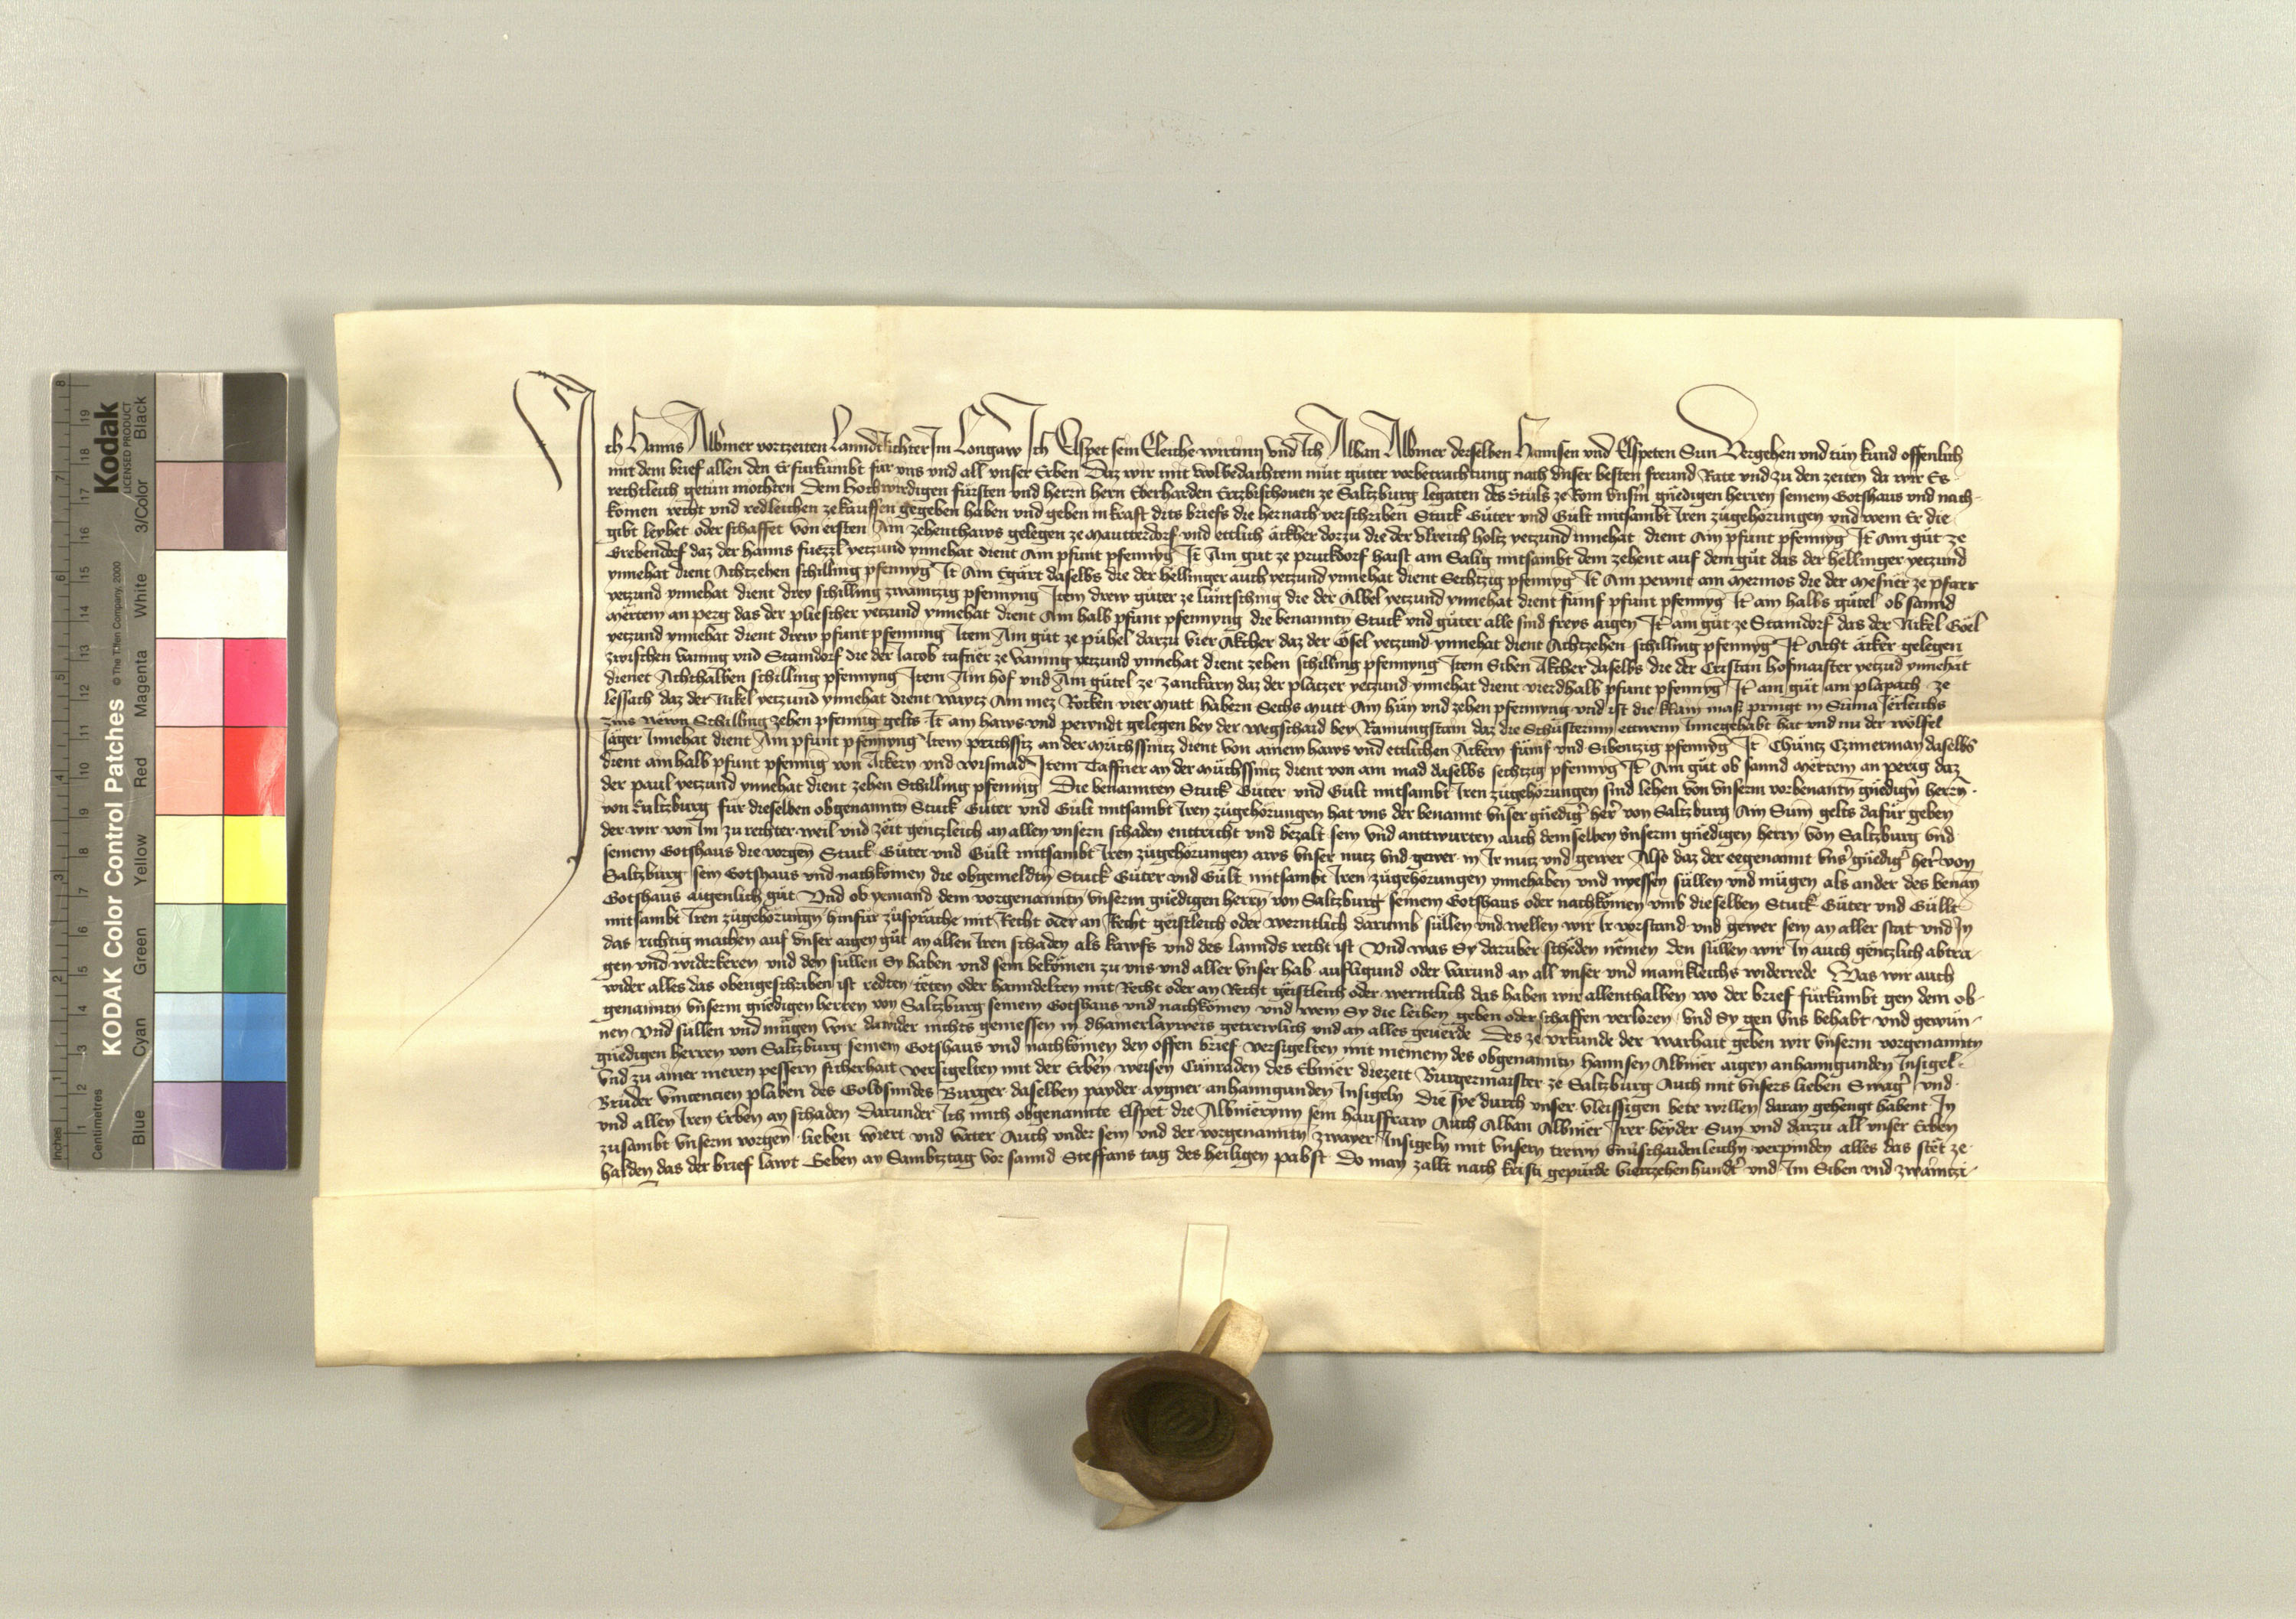 Ich Hanns Albmer vorzeiten Lanndtrichter Im Longaw Ich Elspet sein Eleiche wirtinn vnd Ich Alban Albmer derselben Hannsen vnd Elspeten Sun Vergehen vnd tün kund offenlich
mit dem brief allen den Er fürkümbt für vns vnd all vnser Erben Daz wir mit wolbedachtem müt güter vorbetrachtung nach vnser besten freund Rate vnd zu den zeiten da wir Es
rechtleich getün mochten Dem Hochwirdigen fürsten vnd herrn hern Eberharden Ertzbischouen ze Saltzburg legaten des Stüls ze Rom vnserm gnedigen herren seinem Gotshaus vnd nach-
komen recht vnd redleichen ze kauffen gegeben haben vnd geben in kraft dits briefs die hernach verschriben Stuck Güter vnd Gült mitsambt Iren zügehörungen vnd wem Er die
gibt leyhet oder schaffet von ersten Ain zehenthaws gelegen ze Mautterdorf vnd ettlich äckher dorzu die der Vlreich holtz yetzund innehat dient Ain pfunt pfennyg It Ain güt ze
Grebendorf daz der hanns fuezzl yetzund ynnehat dient Ain pfunt pfennyg It Ain gut ze pruckdorf haist am Salig mitsambt dem zehent auf dem güt das der hellinger yetzund
ynnehat dient Achtzehen schilling pfennyg It Ain Egärt daselbs die der hellinger auch yetzund ynnehat dient Sechtzig pfennyg It Ain pewnt am Mermos die der Mesner ze pfarr
yetzund ynnehat dient drey schilling zwaintzig pfennyng Item drew güter ze lüntsching die der Albel yetzund ynnehat dient fünf pfunt pfennyg It ain halbs gütel ob sannd
Mertem an perg das der pliescher yetzund ynnehat dient Ain halb pfunt pfennyng die benantn Stuck vnd güter alle sind freys aigen It ain güt ze Stanndorf das der Nikel Göel
yetzund ynnehat dient drew pfunt pfenning Item Ain güt ze pühel darzu vier Akcher daz der Ösel yetzund ynnehat dient Achtzehen schilling pfennyg It Acht äcker gelegen
zwischen Vaning vnd Stanndorf die der Jacob tafner ze Vaning yetzund ynnehat dient zehen schilling pfennyng Item Siben Akcher daselbs die der Cristan hofmaister yetzud ynnehat
dienet Achthalben schilling pfennyng Item Ain hof vnd Ain gütel ze Zanckarn daz der platzer yetzund ynnehat dient vierdhalb pfunt pfennyg It ain güt am plapach ze
lessach daz der Nikel yetzund ynnehat dient waytz Ain mez Rocken vier Mutt habern Sechs Mutt Ain hün vnd zehen pfennyng vnd ist die klain mass pringt in Suma Jerleichs
zins newn Schilling zehen pfennig gelts It ain haws vnd pewndt gelegen bey der wegschaid bey Ramungstain daz die Schüsterinn ettwenn Innegehabt hat vnd nu der wölfel
Jäger Innehat dient Ain pfunt pfennyng Item prichssiz an der Müchssnitz dient von ainem haws vnd ettlichen Äckern fünf vnd Sibentzig pfennyg It Chüntz Czimerman daselbs
dient ain halb pfunt pfennig von Äckern vnd wismad Item Taffner an der Müchssnitz dient von ain mad daselbs sechtzig pfennyg It Ain güt ob sannd Mertem an perig daz
der paul yetzund ynnehat dient zehen Schilling pfennig Die benannten Stuck Güter vnd Gült mitsambt Iren zügehörungen sind lehen von vnserm vorbenantn gnedign herrn
von Saltzburg für dieselben obgenanntn Stuck Güter vnd Gült mitsambt Iren zügehörungen hat vns der benannt vnser gnedig her von Saltzburg Ain Sum gelts dafür geben
der wir von Im zu rechter weil vnd zeit gentzleich an allen vnsern schaden enttricht vnd bezalt sein Vnd anttwurten auch demselben vnserm gnedigen herrn von Saltzburg vnd
seinem Gotshaus die vorgen Stuck Güter vnd Gült mitsambt Iren zügehörungen aws vnser nutz vnd gewer in Ir nutz vnd gewer Also daz der eegenannt vns gnedig her von
Saltzburg sein Gotshaus vnd nachkomen die obgemeldtn Stuck Güter vnd Gült mitsambt Iren zügehörungen ynnehaben vnd nyessen süllen vnd mügen als ander des benan
Gotshaus aigenlich güt Vnd ob yemand dem vorgenanntn vnserm gnedigen herrn von Saltzburg seinem Gotshaus oder nachkomen vmb dieselben Stuck Güter vnd Güllt
mitsambt Iren zügehörungn hinfür züsprüche mit Recht oder an Recht geistleich oder werntlich darumb süllen vnd wellen wir Ir vorstand vnd gewer sein an aller stat vnd In
das richtig machen auf vnser aigen güt an allen Iren schaden als kawfs vnd des lannds recht ist Vnd was Sy darüber scheden nemen den süllen wir In auch gentzlich abtra-
gen vnd widerkeren vnd den süllen Sy haben vnd sein bekömen zu vns vnd aller vnser hab aufligund oder varund an all vnser vnd mänikleichs widerrede Was wir auch
wider alles das obengeschriben ist redten teten oder hanndelten mit Recht oder an Recht geistleich oder werntlich das haben wir allenthalben wo der brief fürkumbt gen dem ob-
genanntn vnserm gnedigen herren von Saltzburg seinem Gotshaus vnd nachkömen vnd wem Sy die leihen geben oder schaffen verloren vnd Sy gen vns behabt vnd gewun-
nen Vnd süllen vnd mügen wir dawider nichts geniessen in dhainerlayweis getrewlich vnd an alles geuerde Des ze vrkunde der warhait geben wir vnserm vorgenanntn
gnedigen herren von Saltzburg seinem Gotshaus vnd nachkömen den offen brief versigelten mit meinem des obgenanntn Hannsen Albmer aigen anhanngunden Insigel
Vnd zu ainer meren pessern sicherhait versigelten mit der Erbern weisen Cunraden des Ebmer diezeit Burgermaister ze Saltzburg Auch mit vnsers lieben Swag vnd
Brüder Vincentien plaben des Goldsmides Burger daselben payder aygner anhanngunden Insigeln Die sye durch vnser vleissigen bete willen daran gehengt habent In
vnd allen Iren Erben an schaden Darunder Ich mich obgenannte Elspet die Albmerynn sein hausfraw Auch Alban Albmer Irer beyder Sun vnd darzu all vnser Erben
zusambt vnserm vorgen lieben wiert vnd vater Auch vnder sein vnd der vorgenanntn zwayer Insigeln mit vnsern trewn vnuerschaidenleichn verpinden alles das stet ze
halden das der brief lawt Geben an Sambtztag vor sannd Steffans tag des heiligen pabst Do man zallt nach kristi gepurde viertzehenhundert vnd Im Siben vnd zwaintzi-
KODAK Color Control Patches
© The Tiffen Company, 2000
Kodak
LICENSED PRODUCT
Inches
Centimetres
Blue
Cyan
Green
Yellow
Red
Magenta
White
3/Color
Black